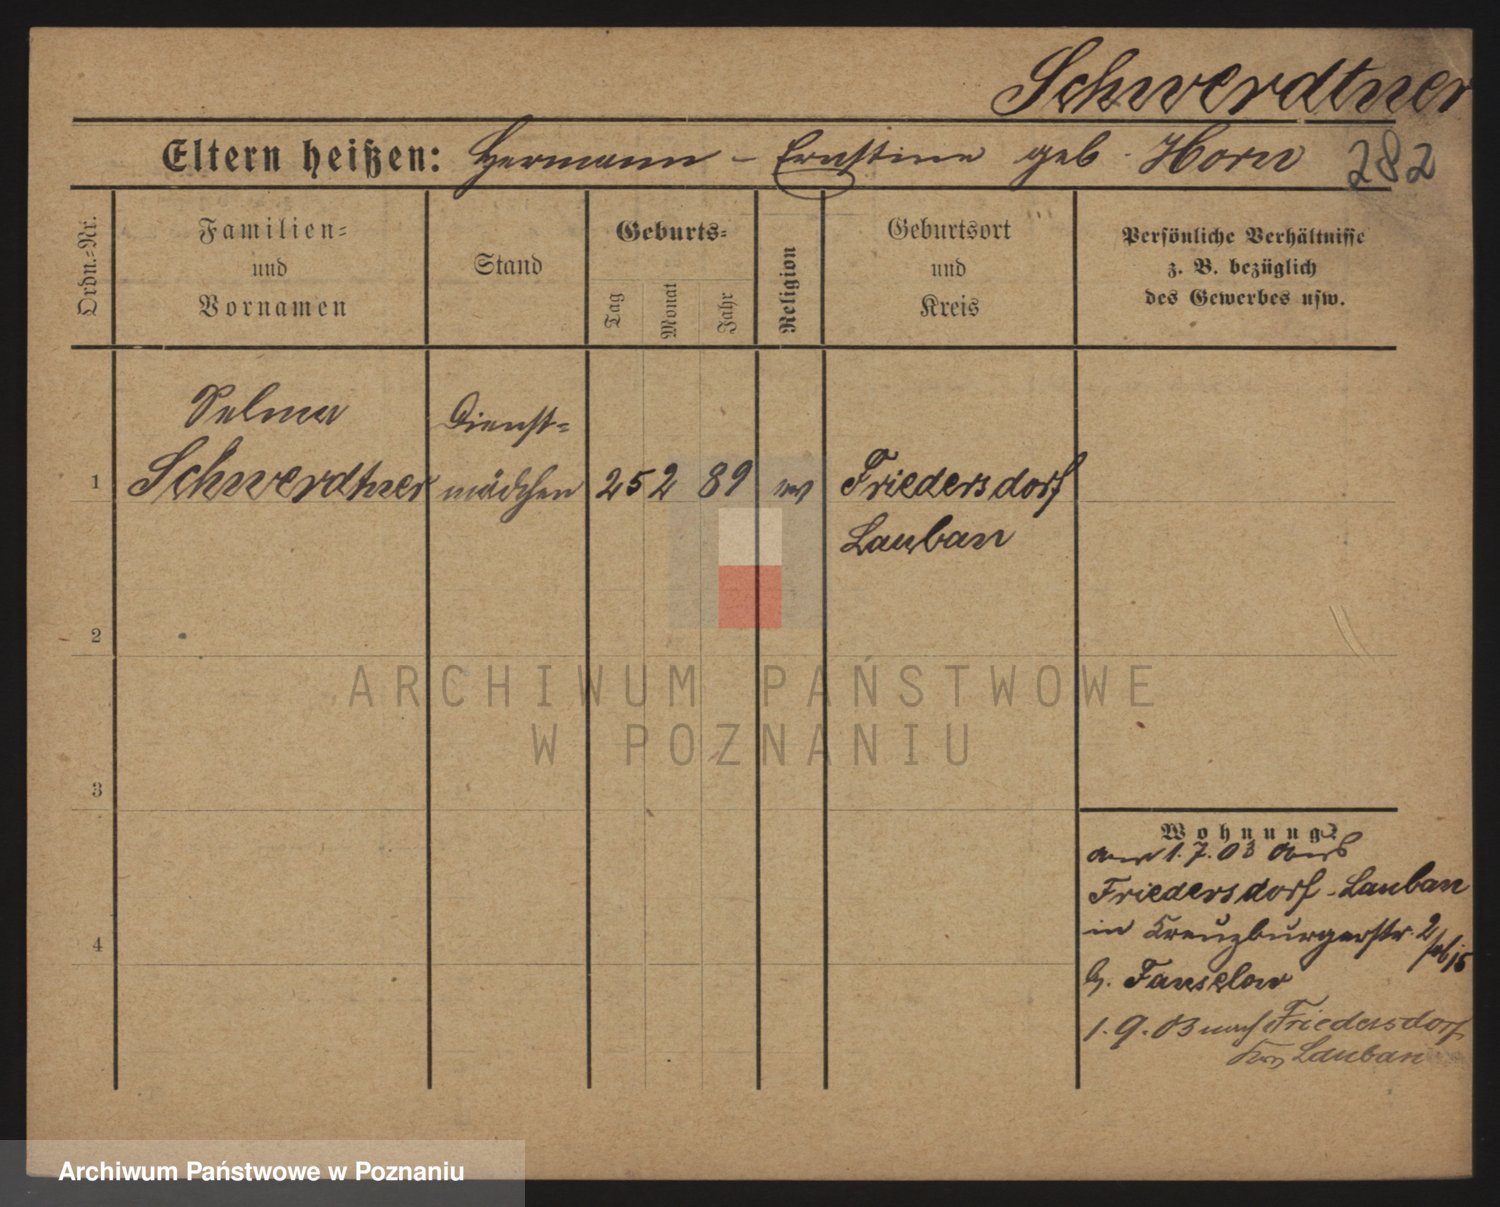 Schwerdtner
Eltern heißen: Hermann - Ernstine geb. Horn 282
Ordn.-Nr.
Familien-
und
Vornamen
Stand
Geburts-
Tag
Monat
Jahr
Religion
Geburtsort
und
Kreis
Persönliche Verhältnisse
z. B. bezüglich
des Gewerbes usw.
Selma
Schwerdtner
Dienst-
mädchen
1
25 2 89
Friedersdorf
Lauban
2
3
4
Wohnung:
am 1.7.03 aus
Friedersdorf - Lauban
in Kreuzburgerstr. 2
b. Fanselow
1.9.03 nach Friedersdorf
Lauban
ARCHIWUM PAŃSTWOWE
W POZNANIU
Archiwum Państwowe w Poznaniu